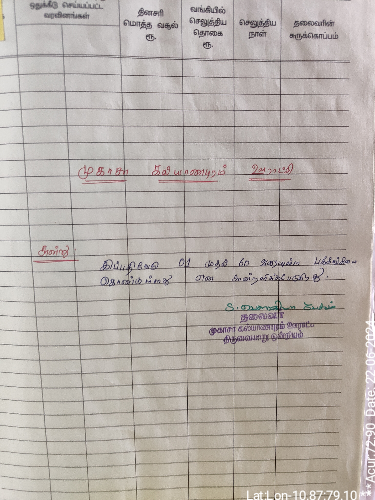 ஒதுக்கீடு செய்யப்பட்ட
வரவினங்கள்
தினசரி
மொத்த வசூல்
ரூ.
வங்கியில்
செலுத்திய
தொகை
ரூ.
செலுத்திய
நாள்
தலைவரின்
சுருக்கொப்பம்
முகாசா கல்யாணபுரம் ஊராட்சி
சான்று
இப்பதிவேடு 01 முதல் 60 வரையுள்ள பக்கங்களை
கொண்டுள்ளது என சான்றளிக்கப்படுகிறது.
தலைவர்
முகாசா கல்யாணபுரம் ஊராட்சி
திருவையாறு ஒன்றியம்
Lat Lon-10.87:79.10
**Acur,72.90 Date: 22-06-2024